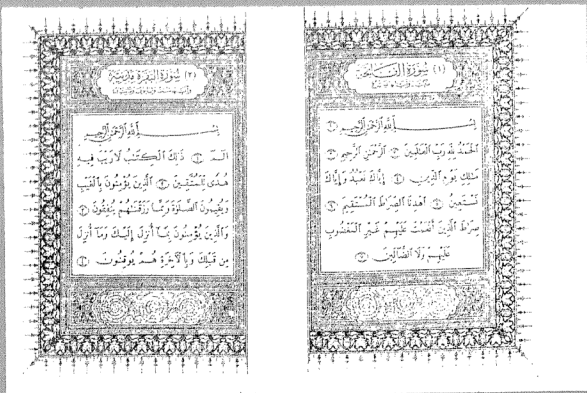 (١) سورة الفاتحة
بسم الله الرحمن الرحيم ١
الحمد لله رب العالمين ٢ الرحمن الرحيم ٣
مالك يوم الدين ٤ إياك نعبد وإياك
نستعين ٥ اهدنا الصراط المستقيم ٦
صراط الذين أنعمت عليهم غير المغضوب
عليهم ولا الضالين ٧
(٢) سورة البقرة مدنية
بسم الله الرحمن الرحيم
الم ١ ذلك الكتب لا ريب فيه
هدى للمتقين ٢ الذين يؤمنون بالغيب
ويقيمون الصلوة ومما رزقنهم ينفقون ٣
والذين يؤمنون بما أنزل إليك وما أنزل
من قبلك وبالآخرة هم يوقنون ٤